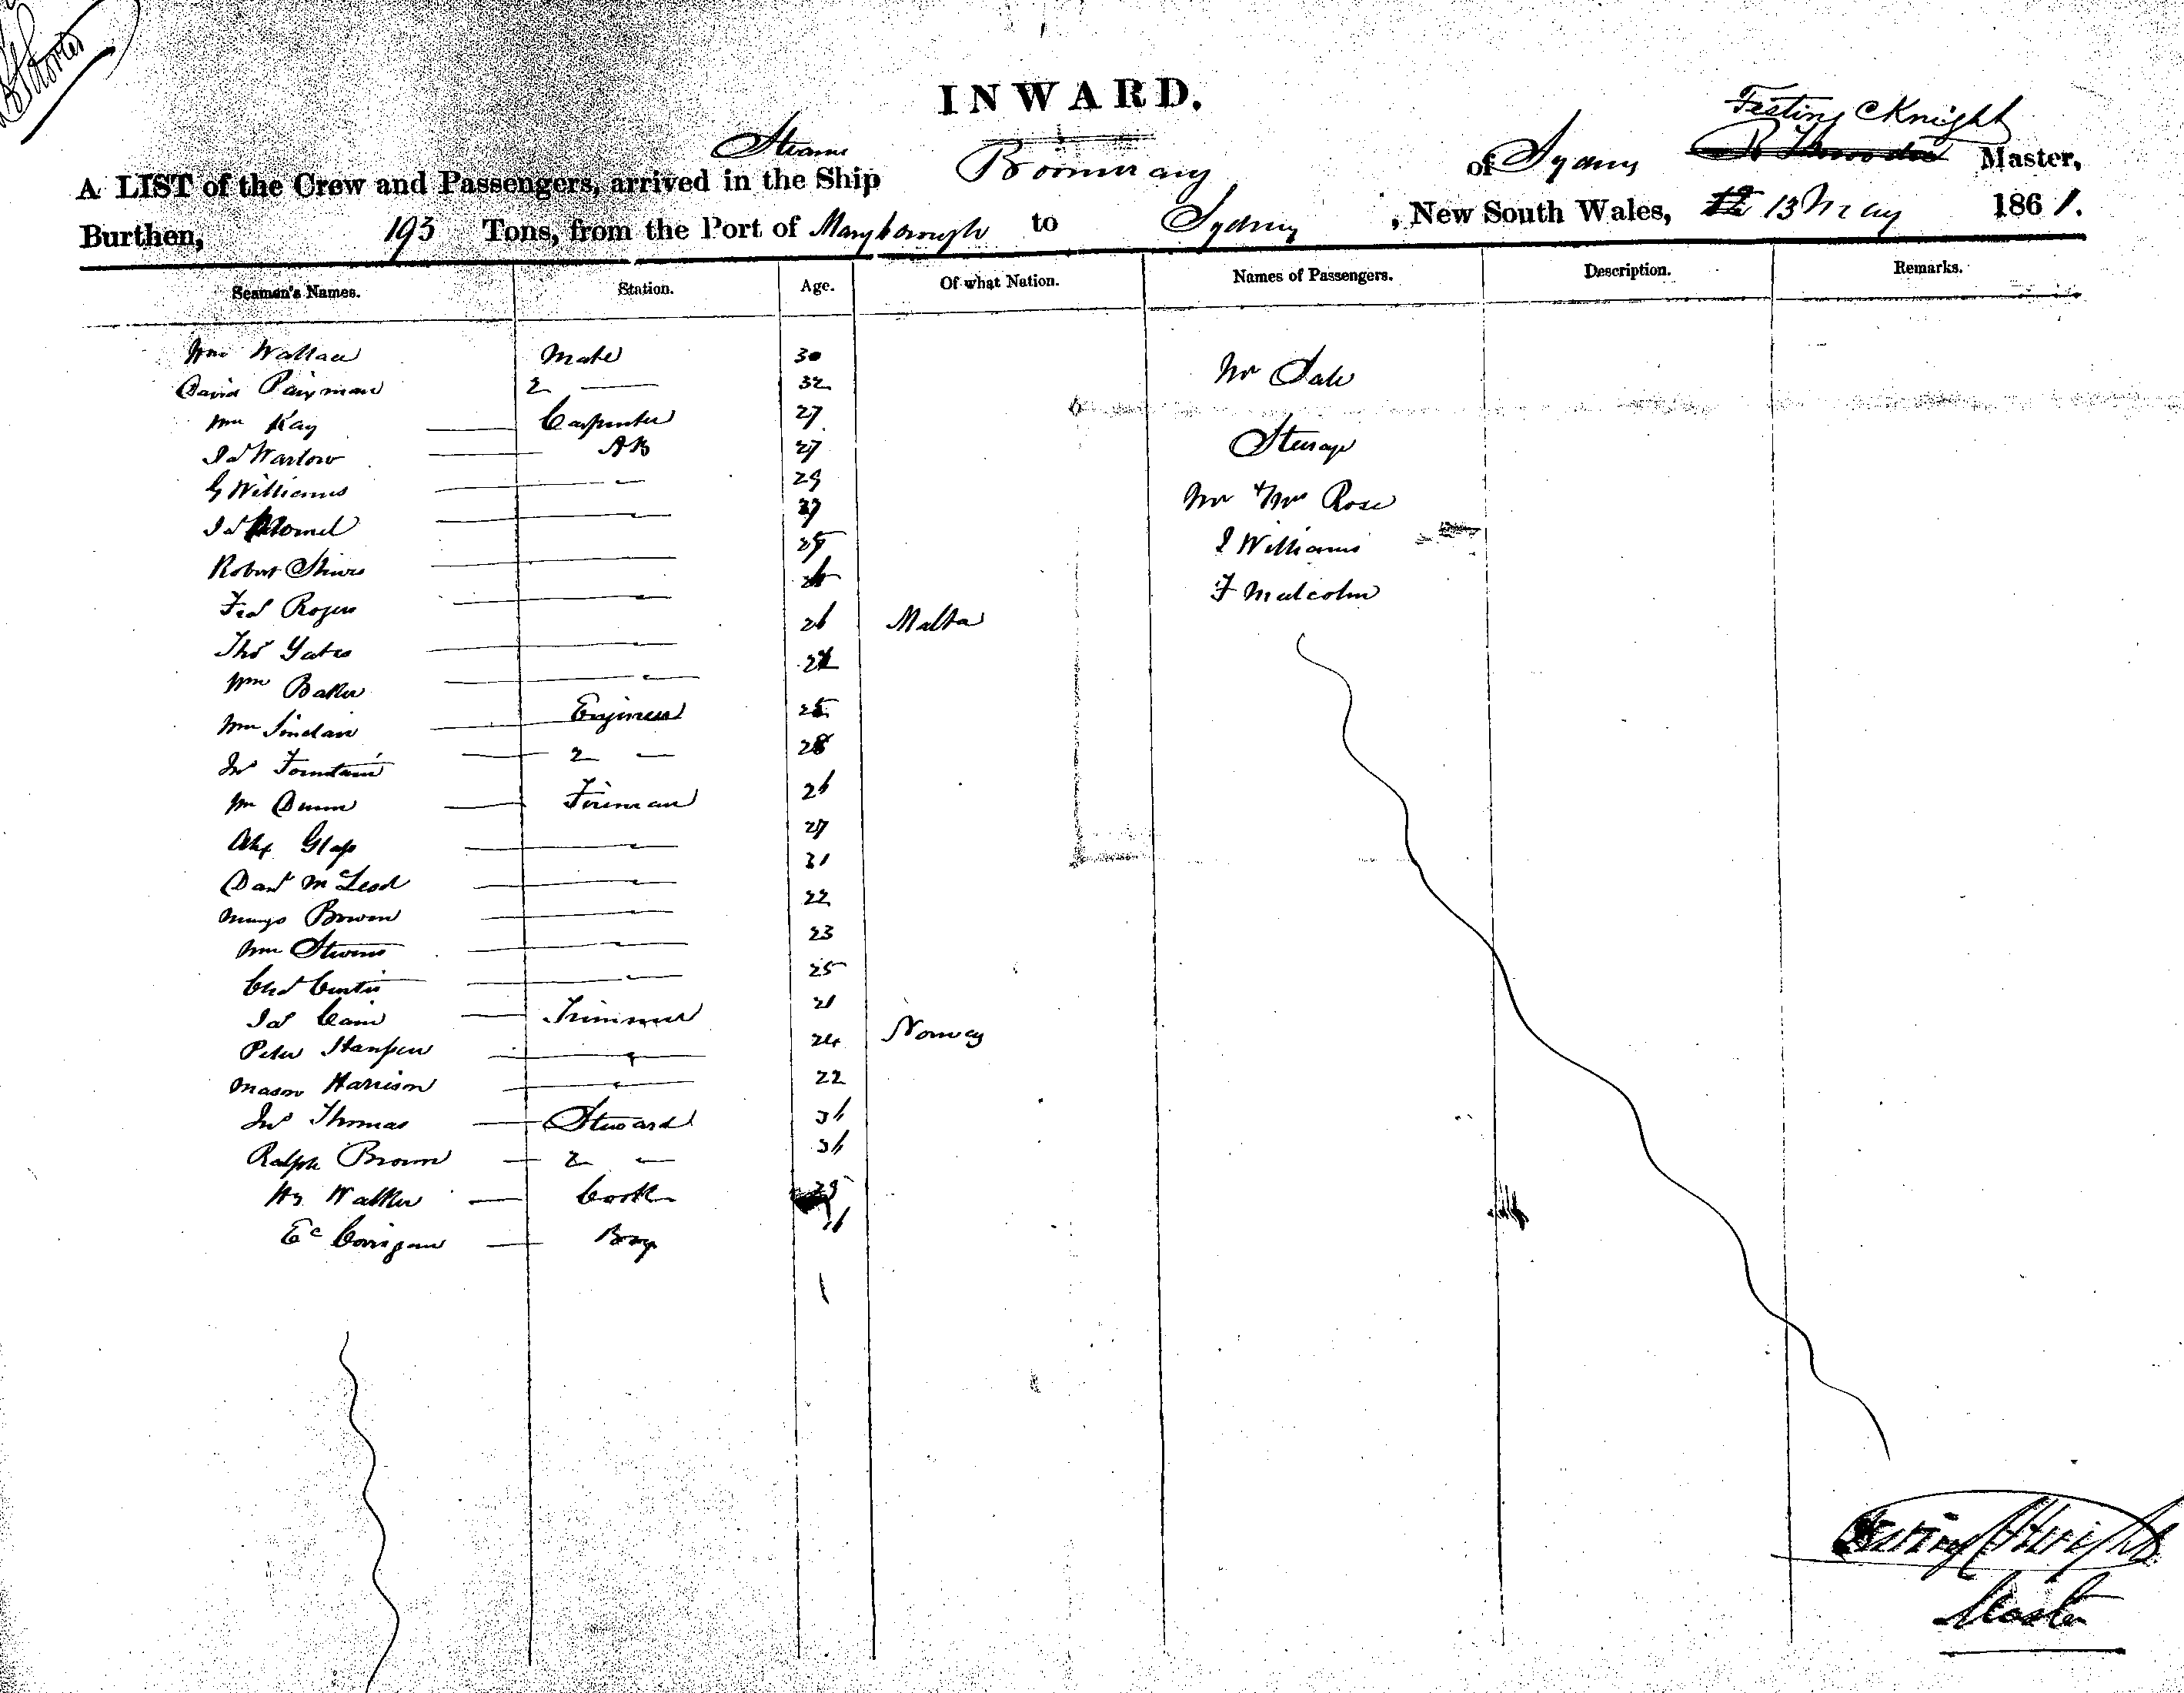 INWARD.
Festing Knight
Steam
A LIST of the Crew and Passengers, arrived in the Ship Boomerang of Sydney Master,
Burthen, 193 Tons, from the Port of Maryborough to Sydney, New South Wales, 13 May 1861.
Seamen's Names. Station. Age. Of what Nation. Names of Passengers. Description. Remarks.
Wm Wallace Mate 30 Mr Sale
David 2 — 32
Wm Kay — Carpenter 27 Steerage
Jas Warlow — AB 27
G Williams — " 29 Mr & Mrs Rose
Jas — "
Robert — 25 J Williams
Fras Rogers — " F Malcolm
Thos Yates — " 26 Malta
Wm Baker — "
Wm Sinclair — Engineer 25
Jno Fountain — 2 — 28
Wm Dunn — Fireman 26
Alex Glass — " 27
Danl McLeod — " 31
Mungo Brown — " 22
Wm Stevens — " 23
Chas Curtis — " 25
Jas Cain — Trimmer 21
Peter Hansen — " 24 Norway
Mason Harrison — " 22
Jno Thomas — Steward 36
Ralph Brown — 2 — 36
Hy Walker — Cook 29
Ed Corrigan — Boy 16
Festing Knight
Master